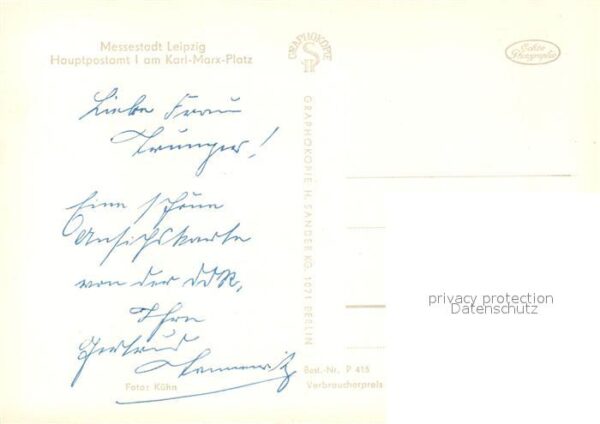 Messestadt Leipzig
Hauptpostamt I am Karl-Marx-Platz
Liebe Frau
Eine schöne
Ansichtskarte
von der DDR,
Ihre
Gertrud
Foto: Kühn
GRAPHOKOPIE
GRAPHOKOPIE H. SANDER KG, 1071 BERLIN
Echte
Photographie
privacy protection
Datenschutz
Best.-Nr. P 415
Verbraucherpreis